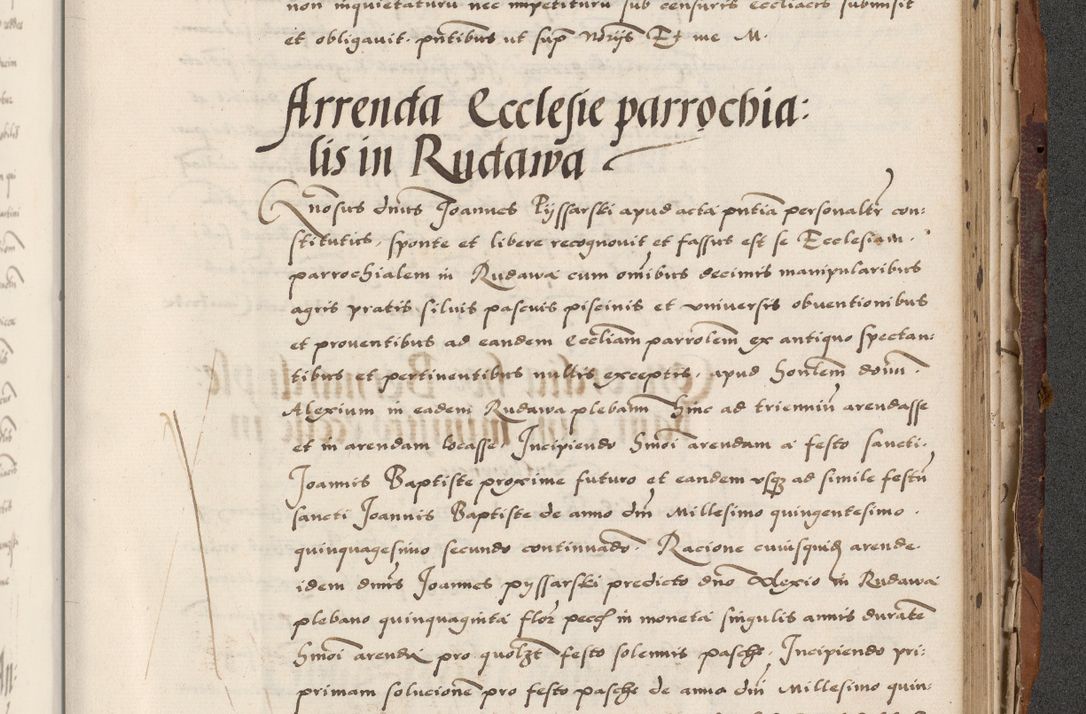 non inquietaturu nec impetituru sub censuris eccliacis submisit
et obligavit. pntibus ut sup Nrijs Et me M.
Arrenda Ecclesie parrochia:
lis in Rudawa
Gnosus dnus Joannes Pyssarski apud acta pntia personaltr con:
stitutus, sponte et libere recognovit et fassus est se Ecclesiam.
parrochialem in Rudawa cum omibus decimis manipularibus
agris pratis silvis pascuis piscinis et universis obventionibus
et proventibus ad eandem Eccliam parrolem ex antiquo spectan:
tibus et pertinentibus nullis exceptis. apud honlem donu.
Alexium in eadem Rudawa plebanu hinc ad trienniu arendasse
et in arendam locasse. Incipiendo hmoi arendam a festo sancti.
Joannis Baptiste proxime futuro et eandem usq ad simile festu
sancti Joannis Baptiste de anno dni Millesimo quingentesimo.
quinquagesimo secundo continuado. Racione cuiusquid arende.
idem dnus Joannes pyssarski predicto dno Alexio in Rudawa
plebano quinquaginta flor pecch in moneta singulis annis durate
hmoi arenda pro quolzt festo solennis pasche. Incipiendo pri:
primam solucione pro festo pasche de anno dni Millesimo quin: